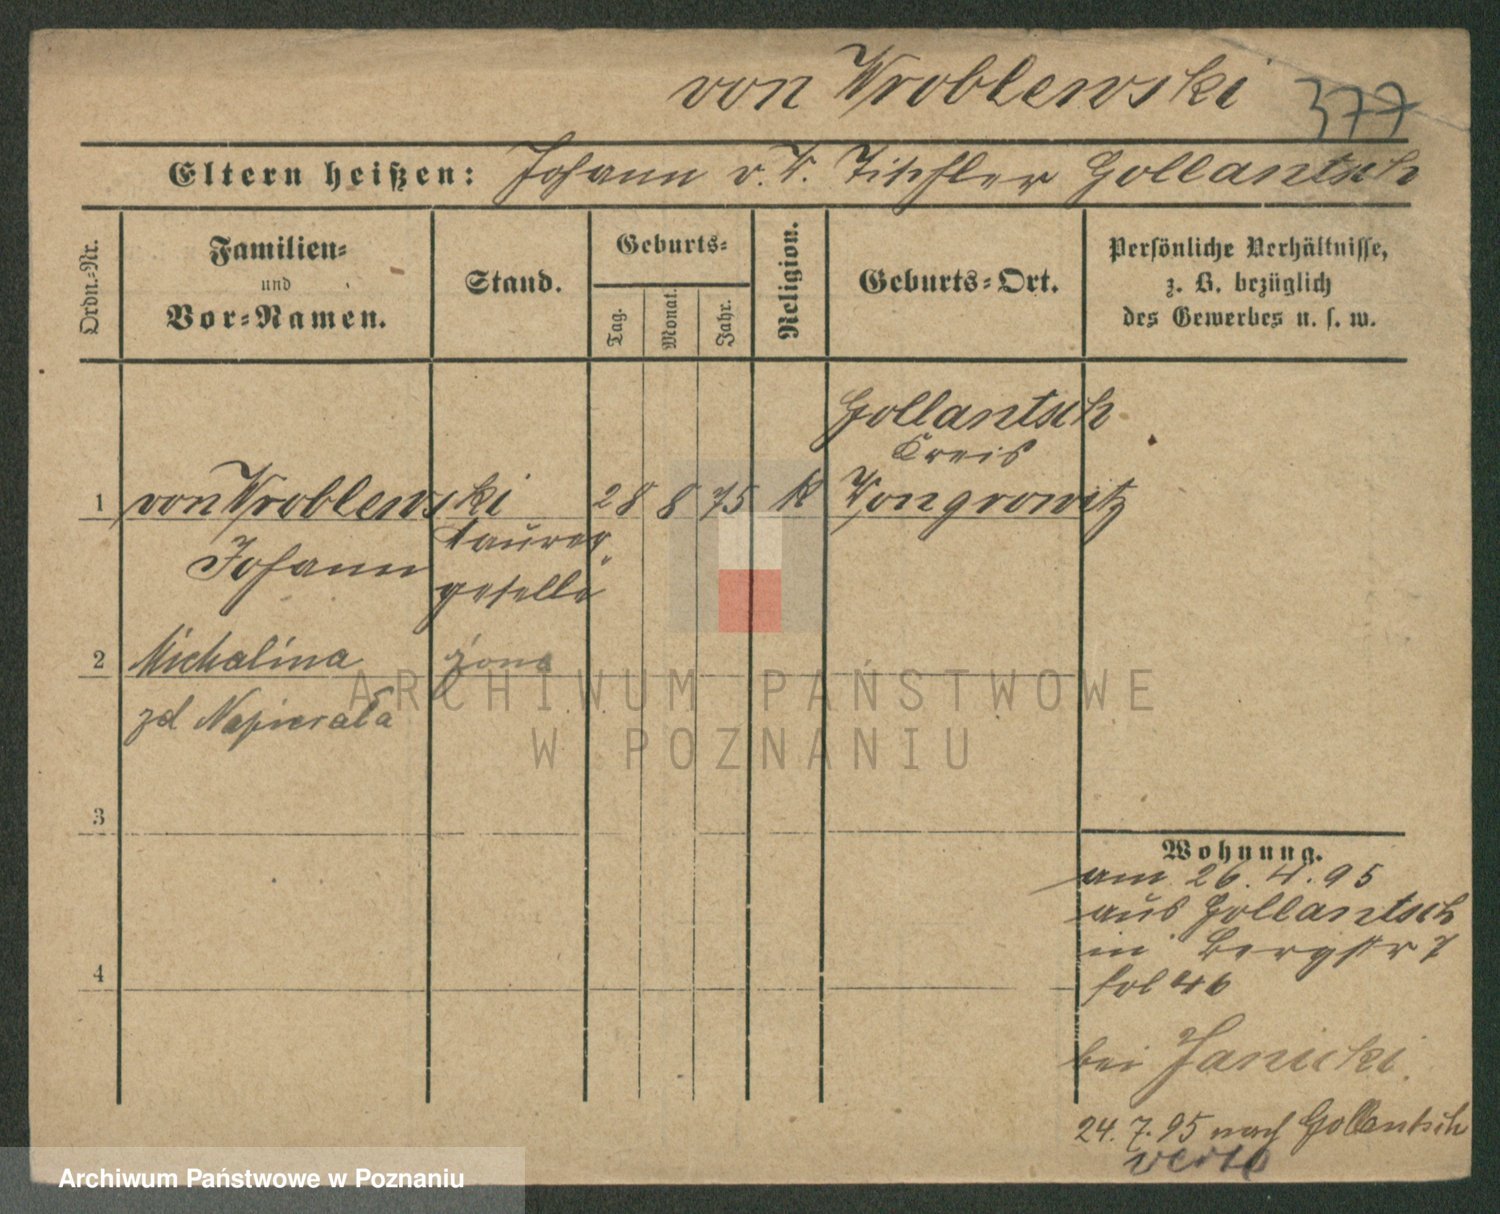 von Wroblewski 377
Eltern heißen: Johann v. W. Tischler Gollantsch
Ordn.-Nr.
Familien-
und
Vor-Namen.
Stand.
Geburts-
Tag.
Monat.
Jahr.
Religion.
Geburts-Ort.
Persönliche Verhältnisse,
z. B. bezüglich
des Gewerbes u. s. w.
Gollantsch
Kreis
1 von Wroblewski 28 8 75 k Wongrowitz
Johann
geselle
2 Michalina żona
zd Napierała
3
4
Wohnung.
am 26. 4. 95
aus Gollantsch
in Bergstr 7
fol 46
bei Janicki
24. 7. 95 nach Gollantsch
verte
ARCHIWUM PAŃSTWOWE
W POZNANIU
Archiwum Państwowe w Poznaniu